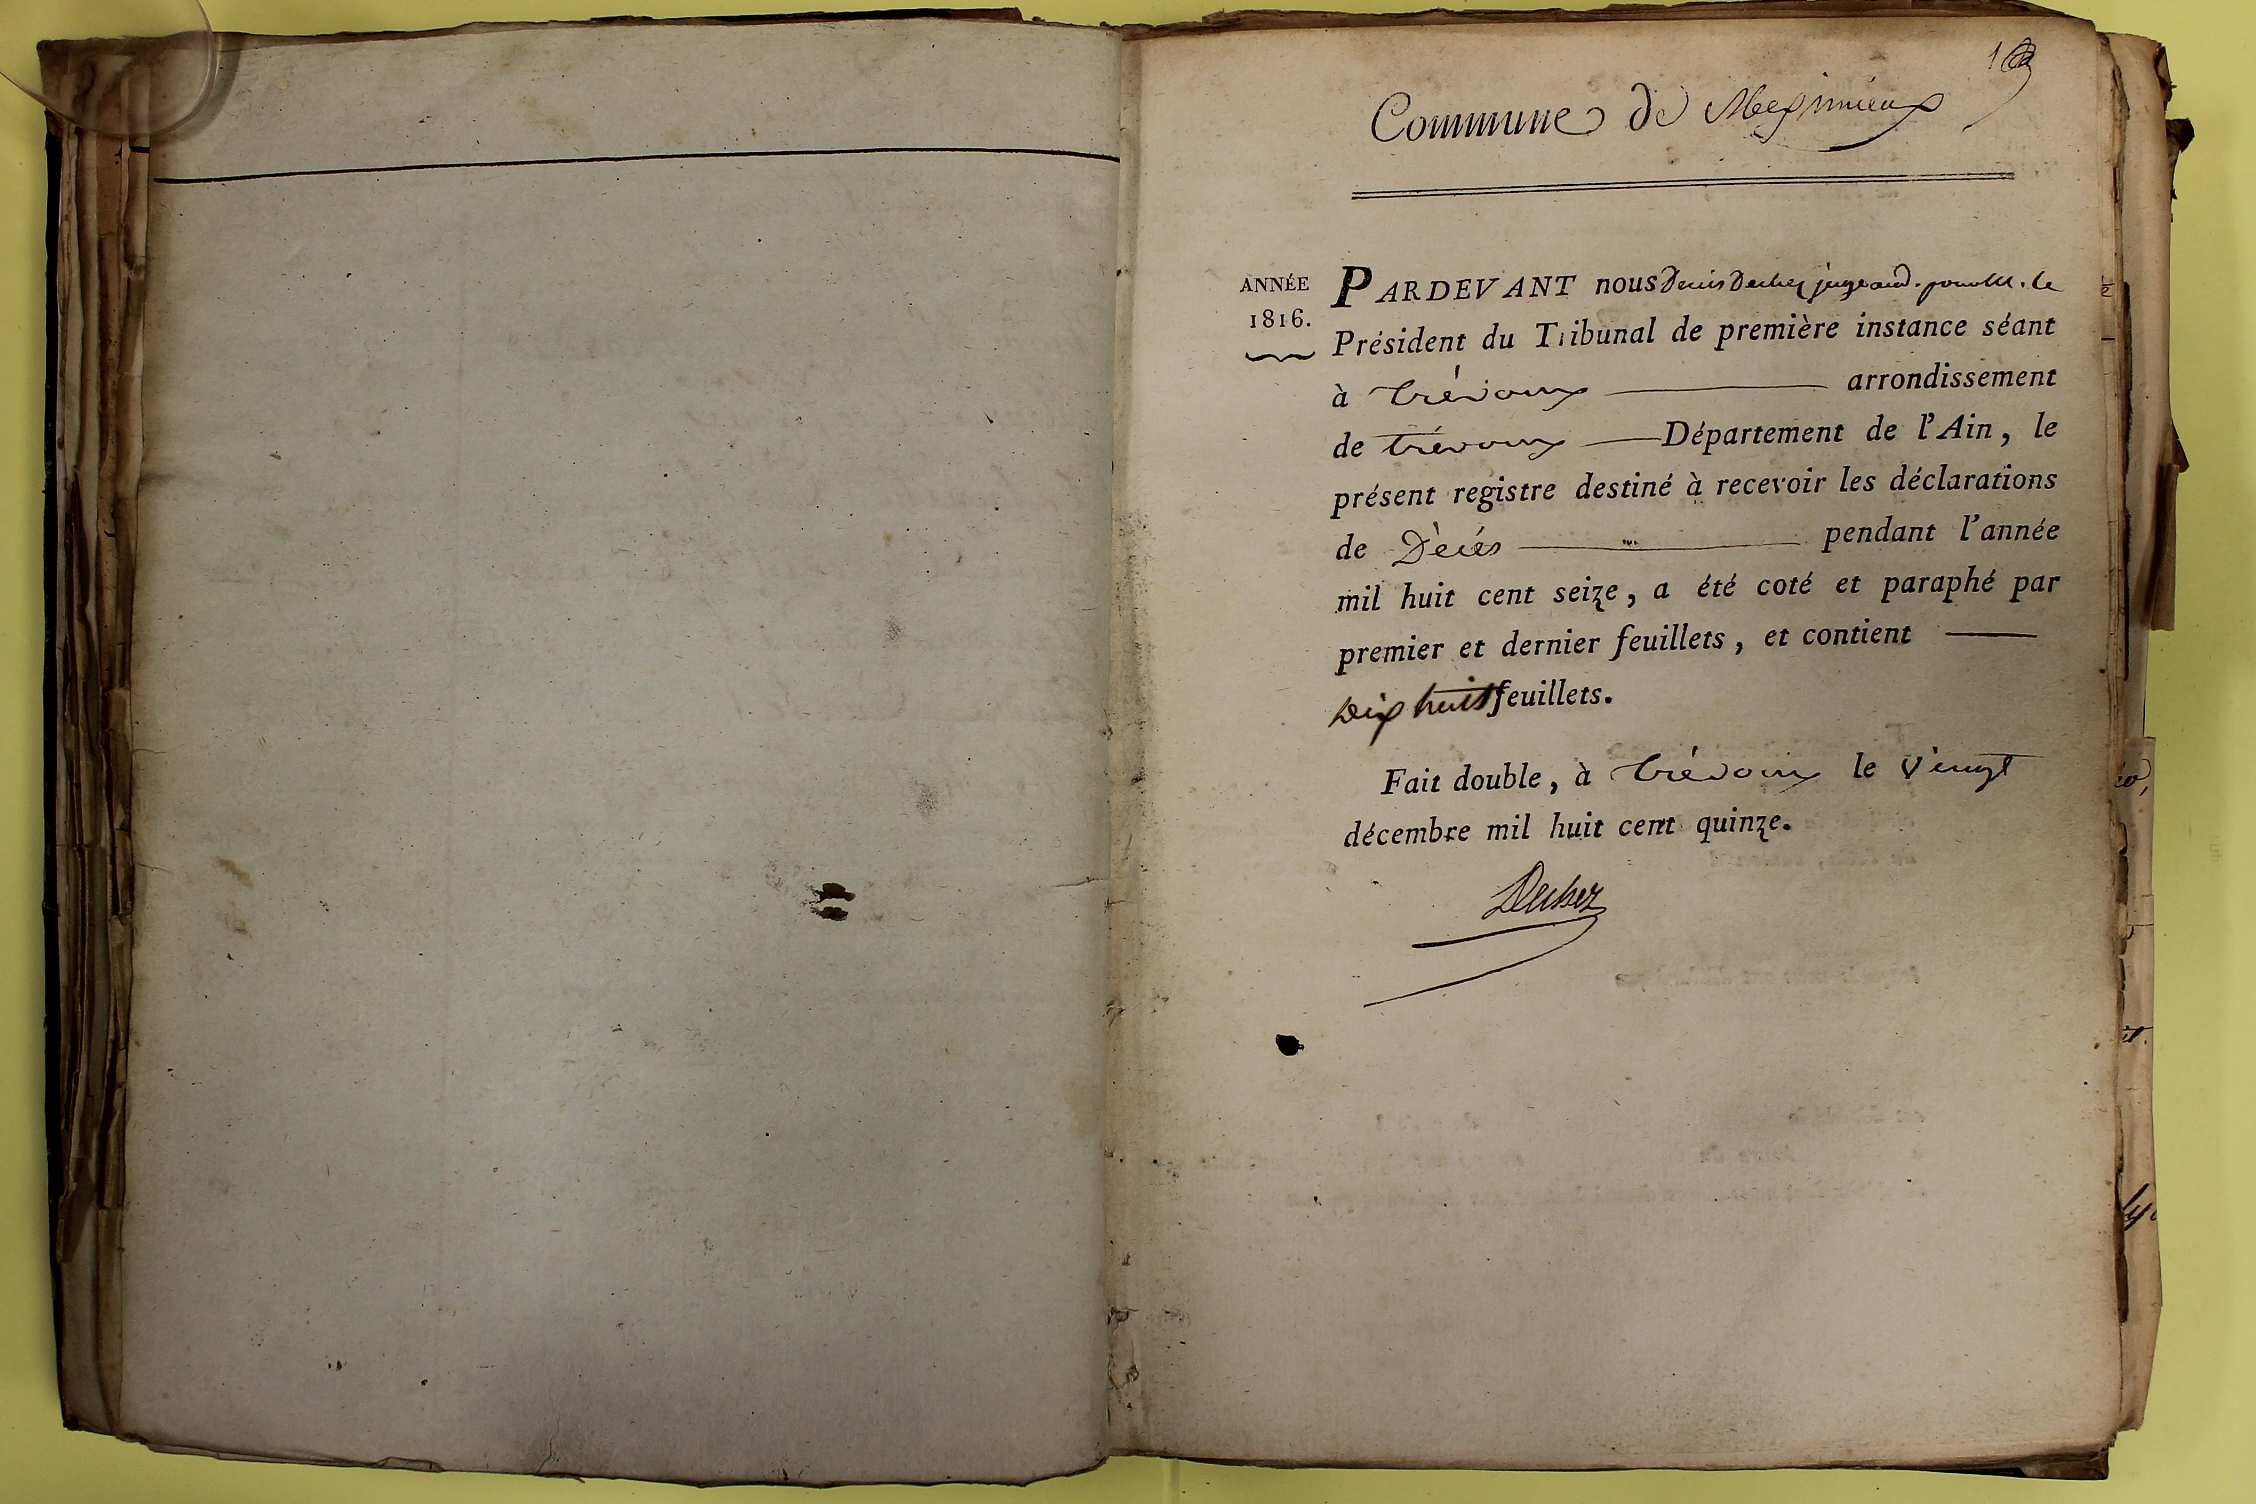 1
Commune de Meximieux
ANNÉE
1816.
PARDEVANT nous Denis Dechez juge aud. pour M. le
Président du Tribunal de première instance séant
à trévoux arrondissement
de trévoux Département de l'Ain, le
présent registre destiné à recevoir les déclarations
de Décés pendant l'année
mil huit cent seize, a été coté et paraphé par
premier et dernier feuillets, et contient
Dix huit feuillets.
Fait double, à trévoux le Vingt
décembre mil huit cent quinze.
Dechez